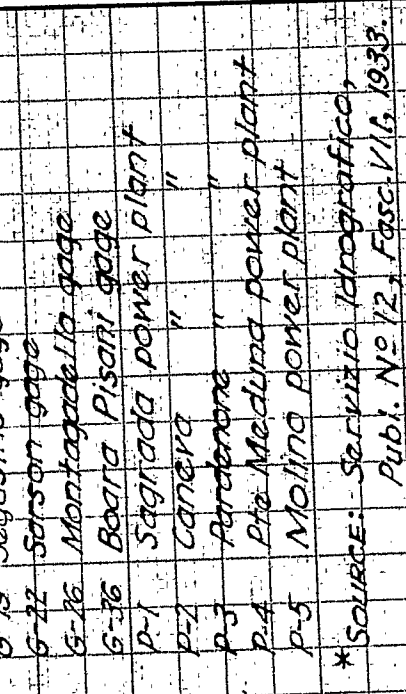 gage
G-22 Sarson gage
G-26 Montagadella gage
G-36 Boara Pisani gage
P-1 Sagrada power plant
P-2 Caneva " "
P-3 Pordenone " "
P-4 Pte Meduna power plant
P-5 Molino power plant
* SOURCE: Servizio Idrografico,
Publ. Nº 12, Fasc. VII, 1933.